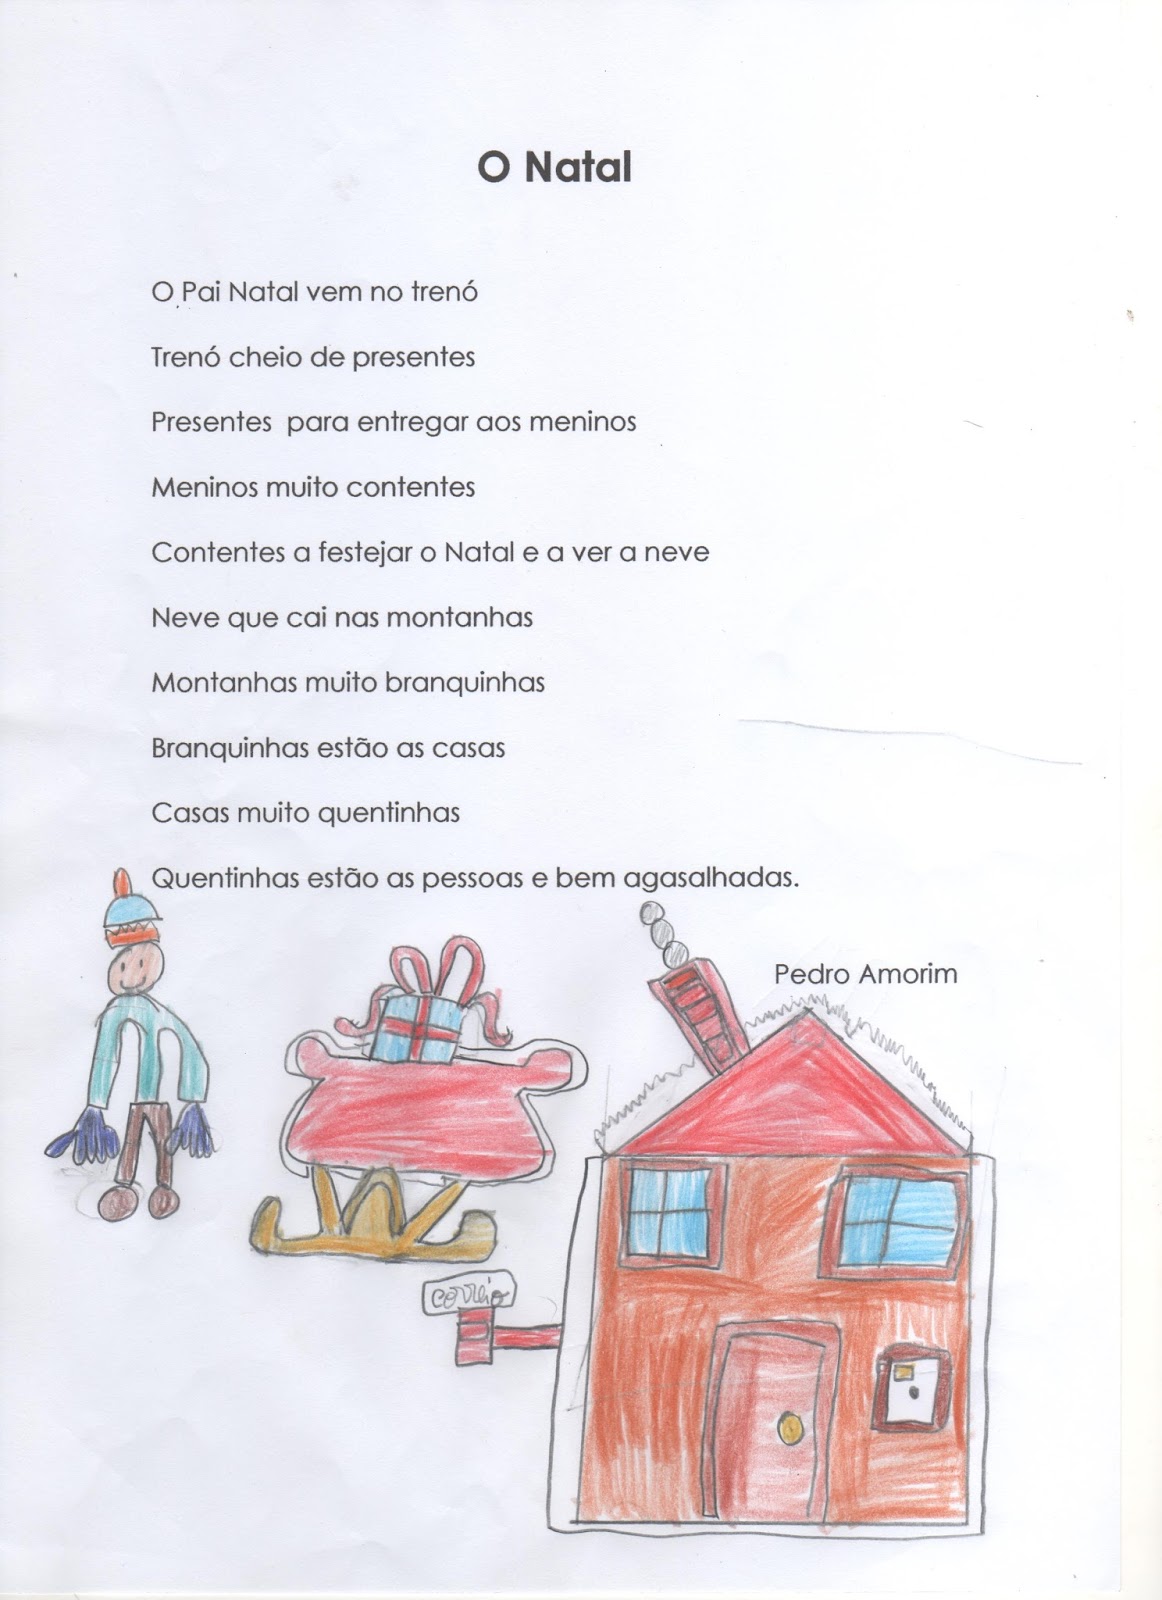 O Natal
O Pai Natal vem no trenó
Trenó cheio de presentes
Presentes  para entregar aos meninos
Meninos muito contentes
Contentes a festejar o Natal e a ver a neve
Neve que cai nas montanhas
Montanhas muito branquinhas
Branquinhas estão as casas
Casas muito quentinhas
Quentinhas estão as pessoas e bem agasalhadas.
Pedro Amorim
correio